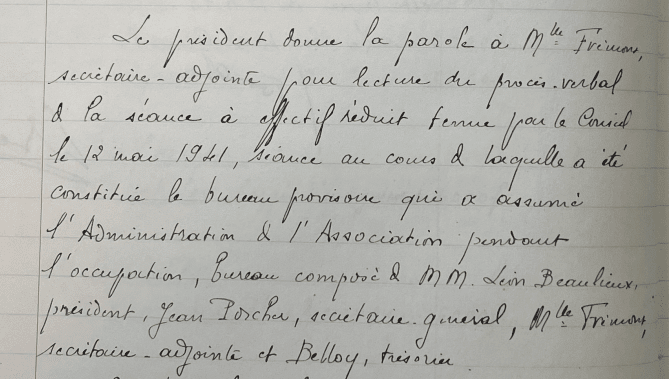 Le président donne la parole à Mlle Frémont,
secrétaire-adjointe pour lecture du procès-verbal
de la séance à effectif réduit tenue par le Conseil
le 12 mai 1941, séance au cours de laquelle a été
constitué le bureau provisoire qui a assumé
l'Administration de l'Association pendant
l'occupation, bureau composé de MM. Léon Beaulieux,
président, Jean Porcher, secrétaire-général, Mlle Frémont,
secrétaire-adjointe et Belloy, trésorier